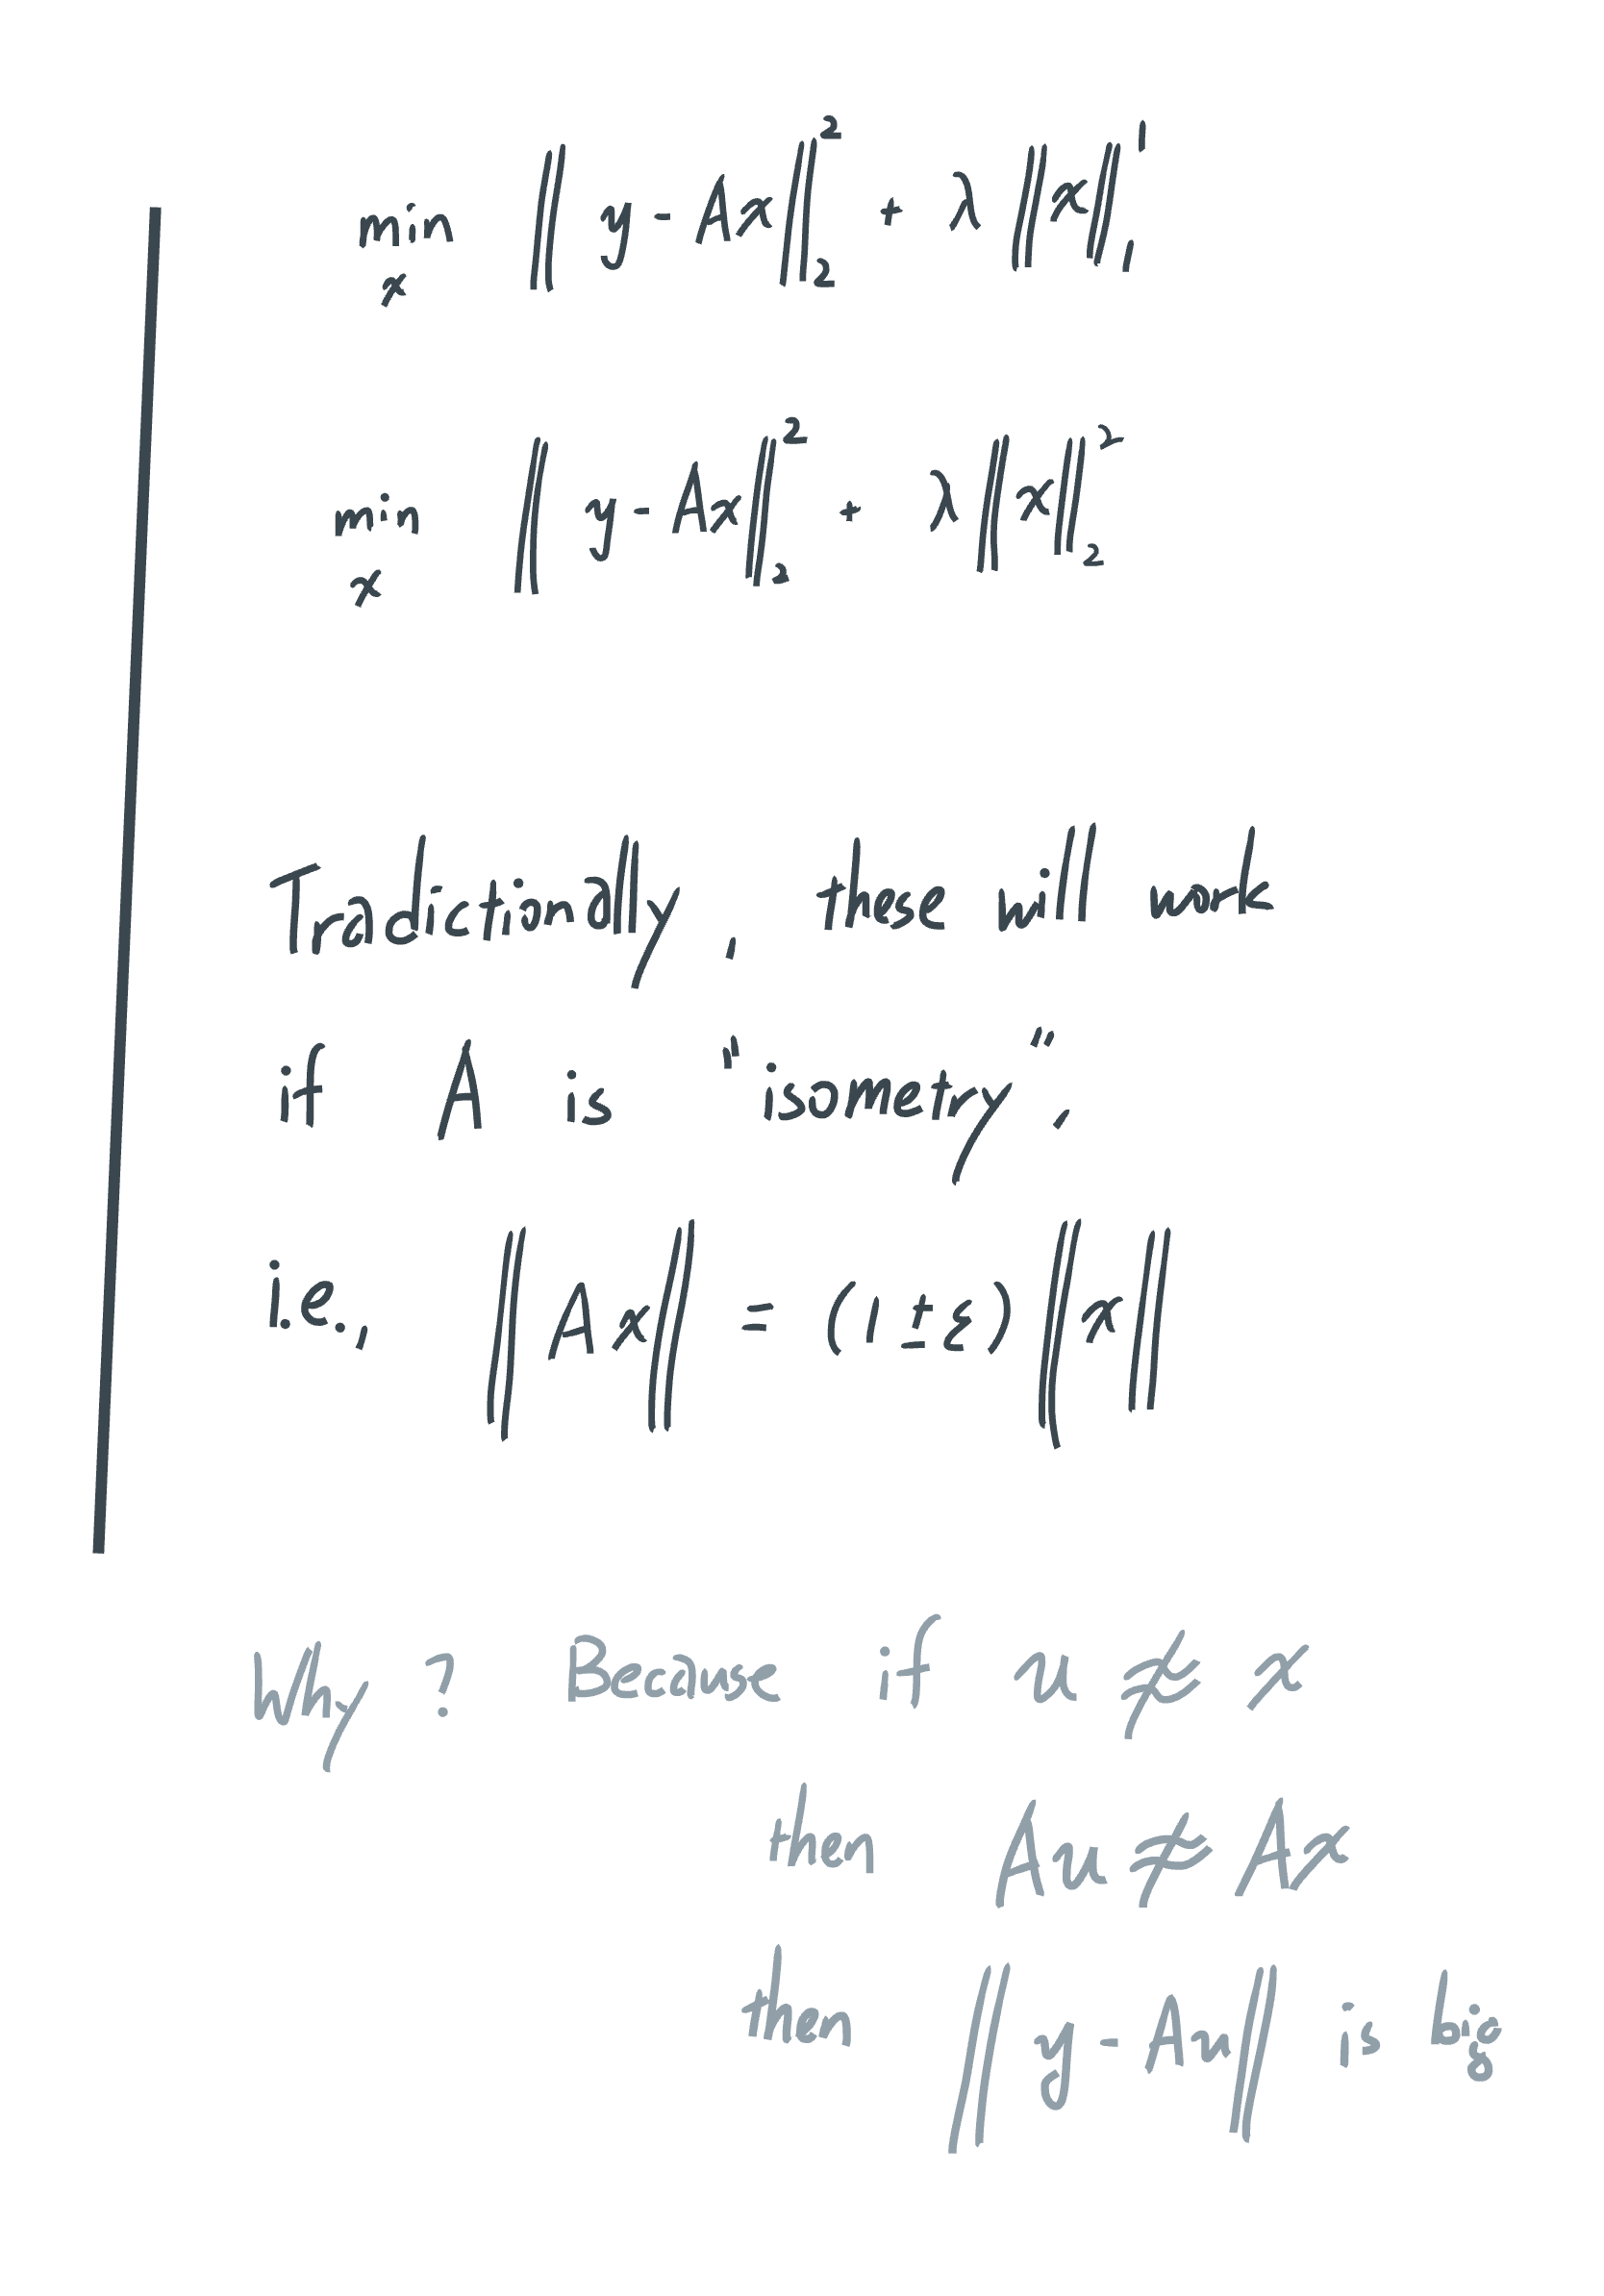 min_x ‖ y - Ax ‖_2^2 + λ ‖x‖_1^1
min_x ‖ y - Ax ‖_2^2 + λ ‖x‖_2^2
Tradictionally, these will work
if A is "isometry",
i.e., ‖Ax‖ = (1 ± ε) ‖x‖
Why? Because if u ≉ x
then Au ≉ Ax
then ‖y - Au‖ is big